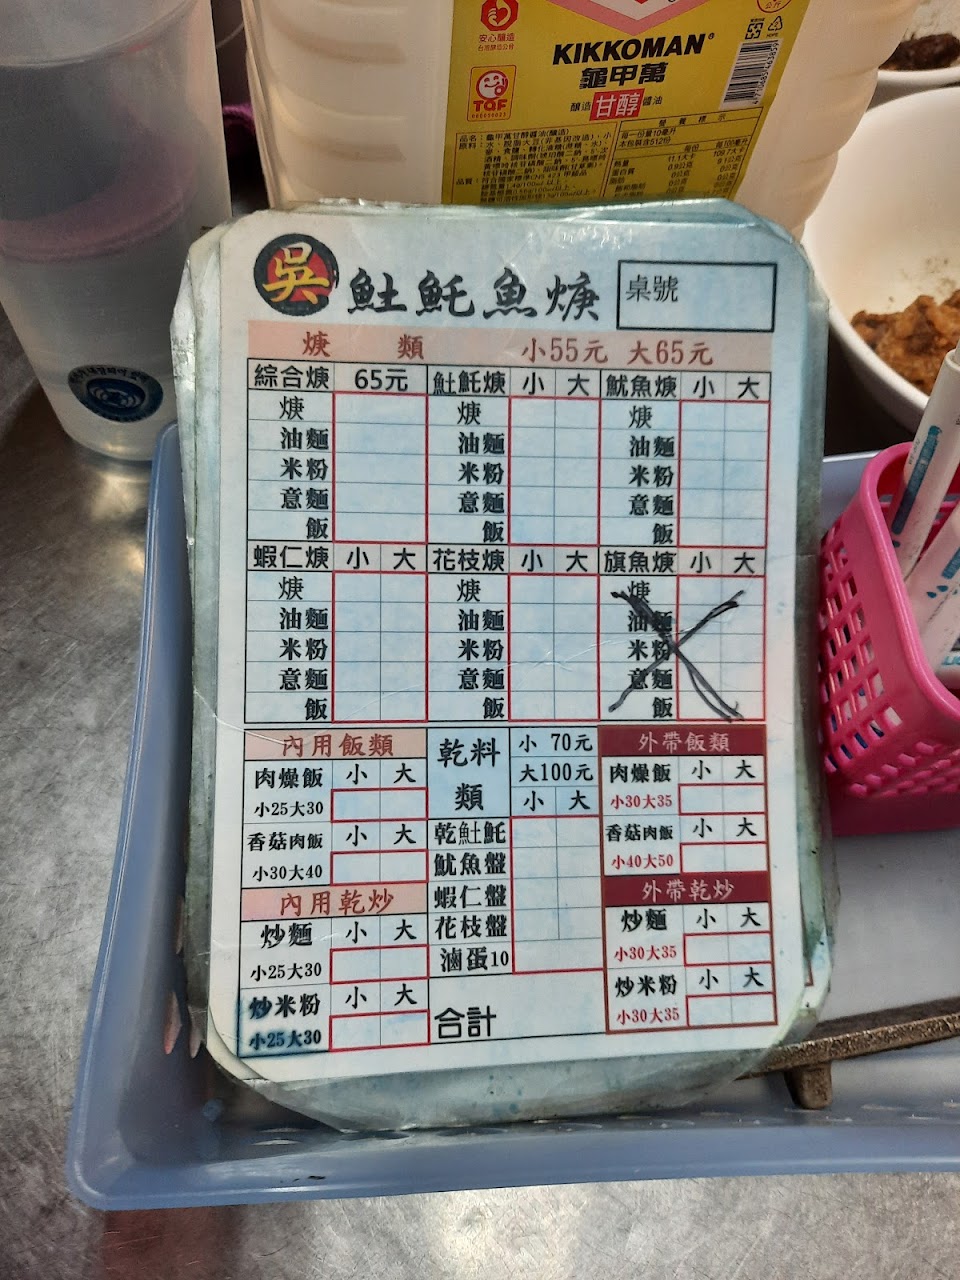 安心釀造
KIKKOMAN
龜甲萬
TQF
釀造 甘醇 醬油
營養標示
每一份量10毫升
本包裝含512份
吳 魠魠魚焿 桌號
焿 類 小55元 大65元
綜合焿 65元 𩵚魠焿 小 大 魷魚焿 小 大
焿 焿 焿
油麵 油麵 油麵
米粉 米粉 米粉
意麵 意麵 意麵
飯 飯 飯
蝦仁焿 小 大 花枝焿 小 大 旗魚焿 小 大
焿 焿 焿
油麵 油麵 油麵
米粉 米粉 米粉
意麵 意麵 意麵
飯 飯 飯
內用飯類 乾料類 小 70元 外帶飯類
大100元
肉燥飯 小 大 小 大 肉燥飯 小 大
小25大30 小30大35
香菇肉飯 小 大 乾𩵚魠 香菇肉飯 小 大
小30大40 魷魚盤 小40大50
內用乾炒 蝦仁盤 外帶乾炒
炒麵 小 大 花枝盤 炒麵 小 大
小25大30 滷蛋10 小30大35
炒米粉 小 大 合計 炒米粉 小 大
小25大30 小30大35